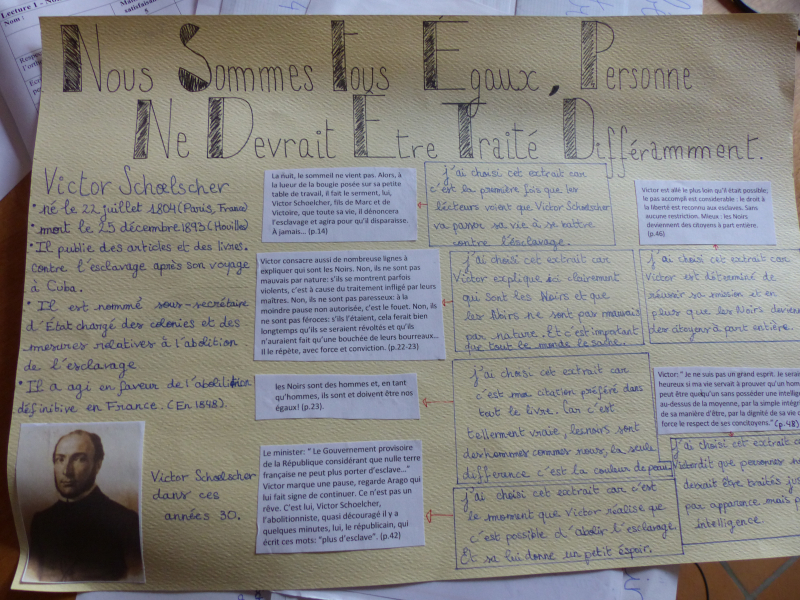 Lecture 1 - No
Nom :
Nous Sommes Tous Égaux, Personne
Ne Devrait Être Traité Différammment.
Victor Schœlscher
• né le 22 juillet 1804 (Paris, France)
• mort le 25 décembre 1893 (Houilles)
• Il publie des articles et des livres
contre l'esclavage après son voyage
à Cuba.
• Il est nommé sous-secrétaire
d'État chargé des colonies et des
mesures relatives à l'abolition
de l'esclavage
• Il a agi en faveur de l'abolition
définitive en France. (En 1848)
Victor Schoelscher
dans ces
années 30.
La nuit, le sommeil ne vient pas. Alors, à
la lueur de la bougie posée sur sa petite
table de travail, il fait le serment, lui,
Victor Schoelcher, fils de Marc et de
Victoire, que toute sa vie, il dénoncera
l'esclavage et agira pour qu'il disparaisse.
À jamais... (p.14)
j'ai choisi cet extrait car
c'est la première fois que les
lécteurs voient que Victor Schoelscher
va passer sa vie à se battre
contre l'ésclavage.
Victor consacre aussi de nombreuses lignes à
expliquer qui sont les Noirs. Non, ils ne sont pas
mauvais par nature: s'ils se montrent parfois
violents, c'est à cause du traitement infligé par leurs
maîtres. Non, ils ne sont pas paresseux: à la
moindre pause non autorisée, c'est le fouet. Non, ils
ne sont pas féroces: s'ils l'étaient, cela ferait bien
longtemps qu'ils se seraient révoltés et qu'ils
n'auraient fait qu'une bouchée de leurs bourreaux...
Il le répète, avec force et conviction. (p.22-23)
j'ai choisi cet extrait car
Victor éxplique ici clairement
qui sont les Noirs et que
les Noirs ne sont pas mauvais
par nature. Et c'est important
que tout le monde le sache.
les Noirs sont des hommes et, en tant
qu'hommes, ils sont et doivent être nos
égaux! (p.23).
j'ai choisi cet extrait car
c'est ma citation préféré dans
tout le livre. Car c'est
tellement vraie, les noirs sont
des hommes comme nous, la seule
difference c'est la couleur de peau.
Le minister: " Le Gouvernement provisoire
de la République considérant que nulle terre
française ne peut plus porter d'esclave..."
Victor marque une pause, regarde Arago qui
lui fait signe de continuer. Ce n'est pas un
rêve. C'est lui, Victor Schoelcher,
l'abolitionniste, quasi découragé il y a
quelques minutes, lui, le républicain, qui
écrit ces mots: "plus d'esclave". (p.42)
j'ai choisi cet extrait car c'est
le moment que Victor réalise que
c'est possible d'abolir l'esclavage.
Et sa lui donne un petit éspoir.
Victor est allé le plus loin qu'il était possible;
le pas accompli est considérable : le droit à
la liberté est reconnu aux esclaves. Sans
aucune restriction. Mieux : les Noirs
deviennent des citoyens à part entière.
(p.46)
j'ai choisi cet extrait car
Victor est déterminé de
réussir sa mission et en
plus que les Noirs devien
des citoyens à part entière.
Victor: " Je ne suis pas un grand esprit. Je serai
heureux si ma vie servait à prouver qu'un hom
peut être quelqu'un sans posséder une intellig
au-dessus de la moyenne, par la simple intégri
de sa manière d'être, par la dignité de sa vie q
force le respect de ses concitoyens." (p.48)
j'ai choisi cet extrait ca
Victor dit que personnes n
devrait être traités ju
par apparence mais p
intelligence.